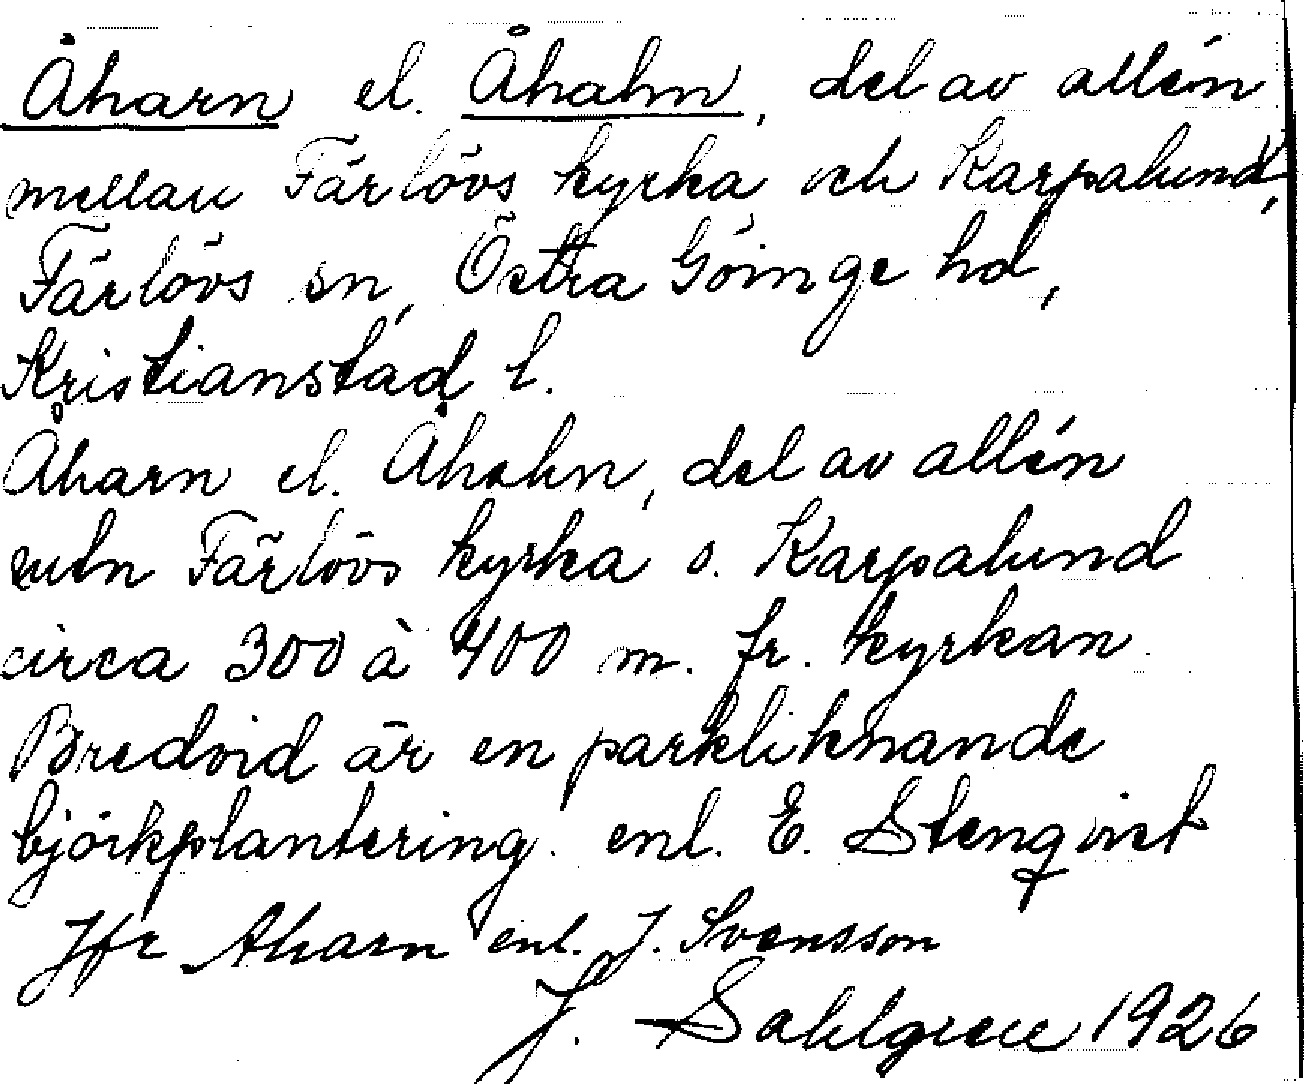 Åharn el. Åhahn, del av allén
mellan Färlövs kyrka och Karpalund,
Färlövs sn, Östra Göinge hd,
Kristianstad l.
Åharn el. Åhahn, del av allén
meln Färlövs kyrka o. Karpalund
circa 300 à 400 m. fr. kyrkan.
Bredvid är en parkliknande
björkplantering. enl. E. Stenqvist
Jfr Aharn enl. J. Svensson
J. Sahlgren 1926